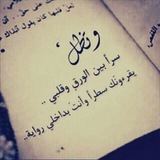 وتظل،
سراً بين الورق وقلبي ..
يقرءونك سطراً وأنت بداخلي رواية..